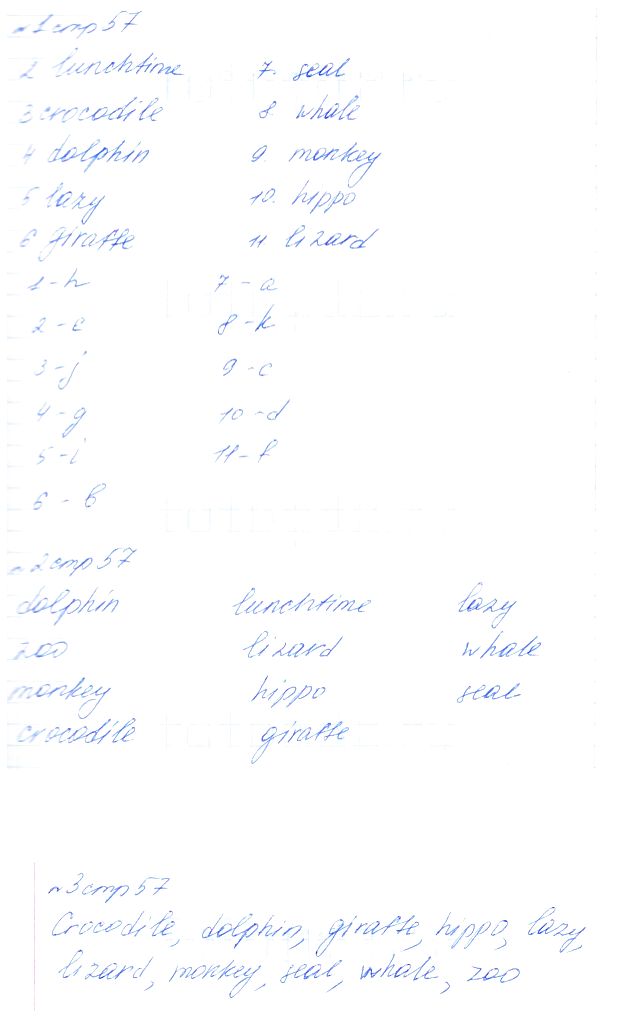 №1 стр 57
2 lunchtime 7. seal
3 crocodile 8. whale
4 dolphin 9. monkey
5 lazy 10. hippo
6 giraffe 11 lizard
1 - h 7 - a
2 - e 8 - k
3 - j 9 - c
4 - g 10 - d
5 - i 11 - f
6 - b
№2 стр 57
dolphin lunchtime lazy
zoo lizard whale
monkey hippo seal
crocodile giraffe
№3 стр 57
Crocodile, dolphin, giraffe, hippo, lazy,
lizard, monkey, seal, whale, zoo